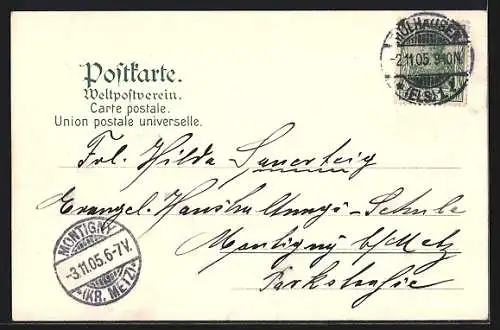 MÜLHAUSEN
-2.11.05. 9-10N.
*(ELS.) 1.
Postkarte.
Weltpostverein.
Carte postale.
Union postale universelle.
Frl. Hilda Sauerteig
Evangel. Haushaltungs-Schule
Montigny b/Metz
Parkstraße
MONTIGNY
-3.11.05. 6-7V.
*(KR. METZ)*